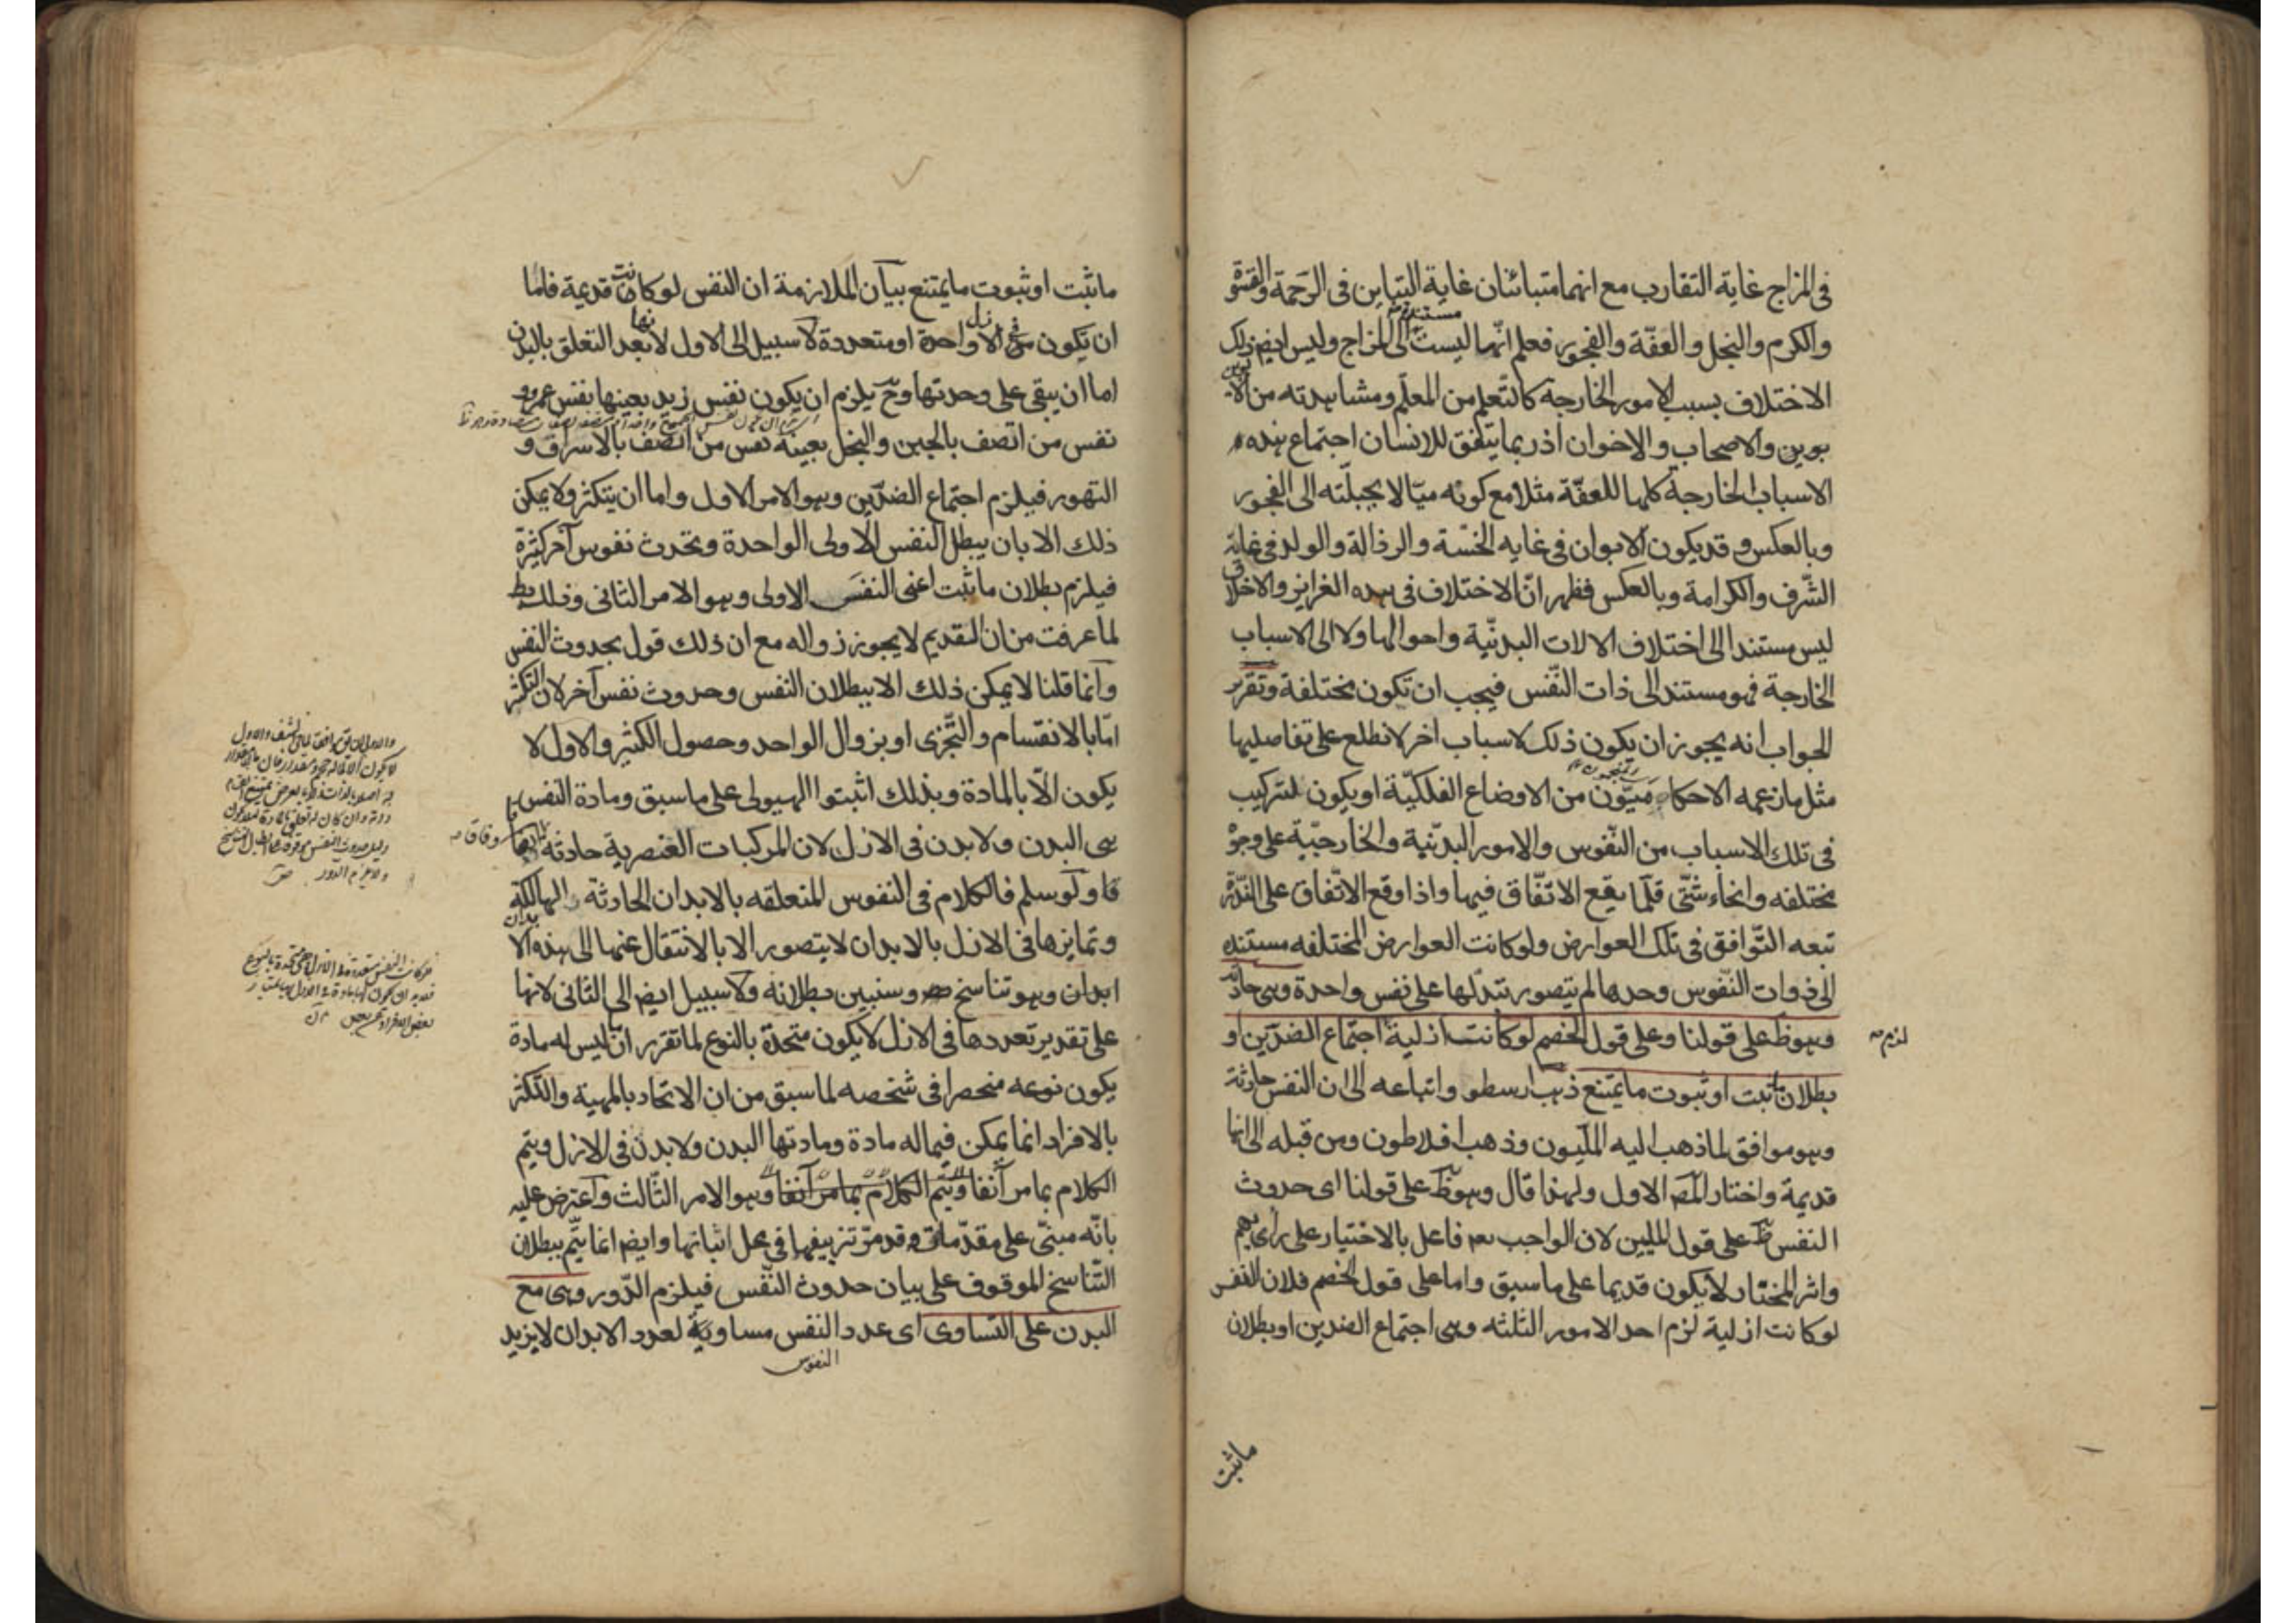 في المزاج غاية التقارب مع انهما متبائنان غاية التباين في الرحمة والقسوة
والكرم والبخل والعفّة والفجور فعلم انّها ليست مستندة الى المزاج وليس ايضا ذلك
الاختلاف بسبب الامور الخارجة كالتّعلم من المعلّم ومشاهدته من الا
بوين والاصحاب والاخوان اذ ربما يتّفق للانسان اجتماع هذه
الاسباب الخارجة كلها للعفّة مثلا مع كونه ميّالا بجبلّته الى الفجور
وبالعكس وقد يكون الابوان في غاية الخسّة والرذالة والولد في غاية
الشّرف والكرامة وبالعكس فظهر انّ الاختلاف في هذه الغرايز والاخلاق
ليس مستندا الى اختلاف الالات البدنّية واحوالها ولا الى الاسباب
الخارجة فهو مستند الى ذات النّفس فيجب ان تكون مختلفة وتقرير
الجواب انه يجوز ان يكون ذلك لاسباب اخر لا نطلع على تفاصيلها
مثل ما زعمه الاحكاميّون من الاوضاع الفلكيّة او يكون لتركيب
في تلك الاسباب من النّفوس والامور البدّنية والخارجيّة على وجوه
مختلفه وانحاء شتّى قلّما يقع الاتّفاق فيها واذا وقع الاتّفاق على النّدرة
تبعه التّوافق في تلك العوارض ولو كانت العوارض المختلفه مستنده
الى ذوات النّفوس وحدها لم يتصور تبدّلها على نفس واحدة وهي حادثة
وهو ظ على قولنا وعلى قول الخصم لو كانت ازلية اجتماع الضدّين او
لزم
بطلان ما ثبت او ثبوت ما يمتنع ذهب ارسطو واتباعه الى ان النفس حادثة
وهو موافق لما ذهب اليه الملّيون وذهب افلاطون ومن قبله الى انها
قديمة واختار المص الاول ولهذا قال وهو ظ على قولنا اى حدوث
النفس ظ على قول المليين لان الواجب تعه فاعل بالاختيار على رأيهم
واثر المختار لا يكون قديما على ما سبق واما على قول الخصم فلان النفس
لو كانت ازلية لزم احد الامور الثلثه وهي اجتماع الضدين او بطلان
ماثبت
ما ثبت او ثبوت ما يمتنع بيان الملازمة ان النفس لو كانت قديمة فاما
ان تكون في الازل واحدة او متعددة لا سبيل الى الاول لانها بعد التعلق بالبدن
اما ان يبقى على وحدتها وح يلزم ان يكون نفس زيد بعينها نفس عمرو و
نفس من اتصف بالجبن والبخل بعينه نفس من اتّصف بالاسراف و
التهور فيلزم اجتماع الضدّين وهو الامر الاول واما ان يتكثر ولا يمكن
ذلك الا بان يبطل النفس الاولى الواحدة وتحدث نفوس آخر كثيرة
فيلزم بطلان ما ثبت اعنى النفس الاولى وهو الامر الثانى وذلك بط
لما عرفت من ان القديم لا يجوز زواله مع ان ذلك قول بحدوث النفس
وانّما قلنا لا يمكن ذلك الا ببطلان النفس وحدوث نفس آخر لان التكثر
امّا بالانقسام والتّجزى او بزوال الواحد وحصول الكثير والاول لا
يكون الّا بالمادة وبذلك اثبتوا الهيولى على ما سبق ومادة النفس
هى البدن ولا بدن فى الازل لان المركبات العنصرية حادثه
وفاقا
قا ولو سلم فالكلام فى النفوس المتعلقه بالابدان الحادثة والهالكة
وتمايزها فى الازل بالابدان لا يتصور الا بالانتقال عنها الى هذه الا
ابدان وهو تناسخ وسنبين بطلانه ولا سبيل ايضا الى الثانى لانها
على تقدير تعددها فى الازل لا يكون متحدة بالنوع لما تقرر ان ما ليس له مادة
يكون نوعه منحصرا فى شخصه لما سبق من ان الاتحاد بالمهية والتّكثر
بالافراد انما يمكن فيما له مادة ومادتها البدن ولا بدن فى الازل ويتم
الكلام بما مر آنفا ويتم الكلام بما مر آنفا وهو الامر الثّالث واعترض عليه
بانّه مبنىّ على مقدّمات وقد مرّ تزييفها فى محل اثباتها وايضا انما يتّم ببطلان
التّناسخ الموقوف على بيان حدوث النّفس فيلزم الدّور وهى مع
البدن على التساوى اى عدد النفس مساوية لعدد الابدان لا يزيد
النفوس